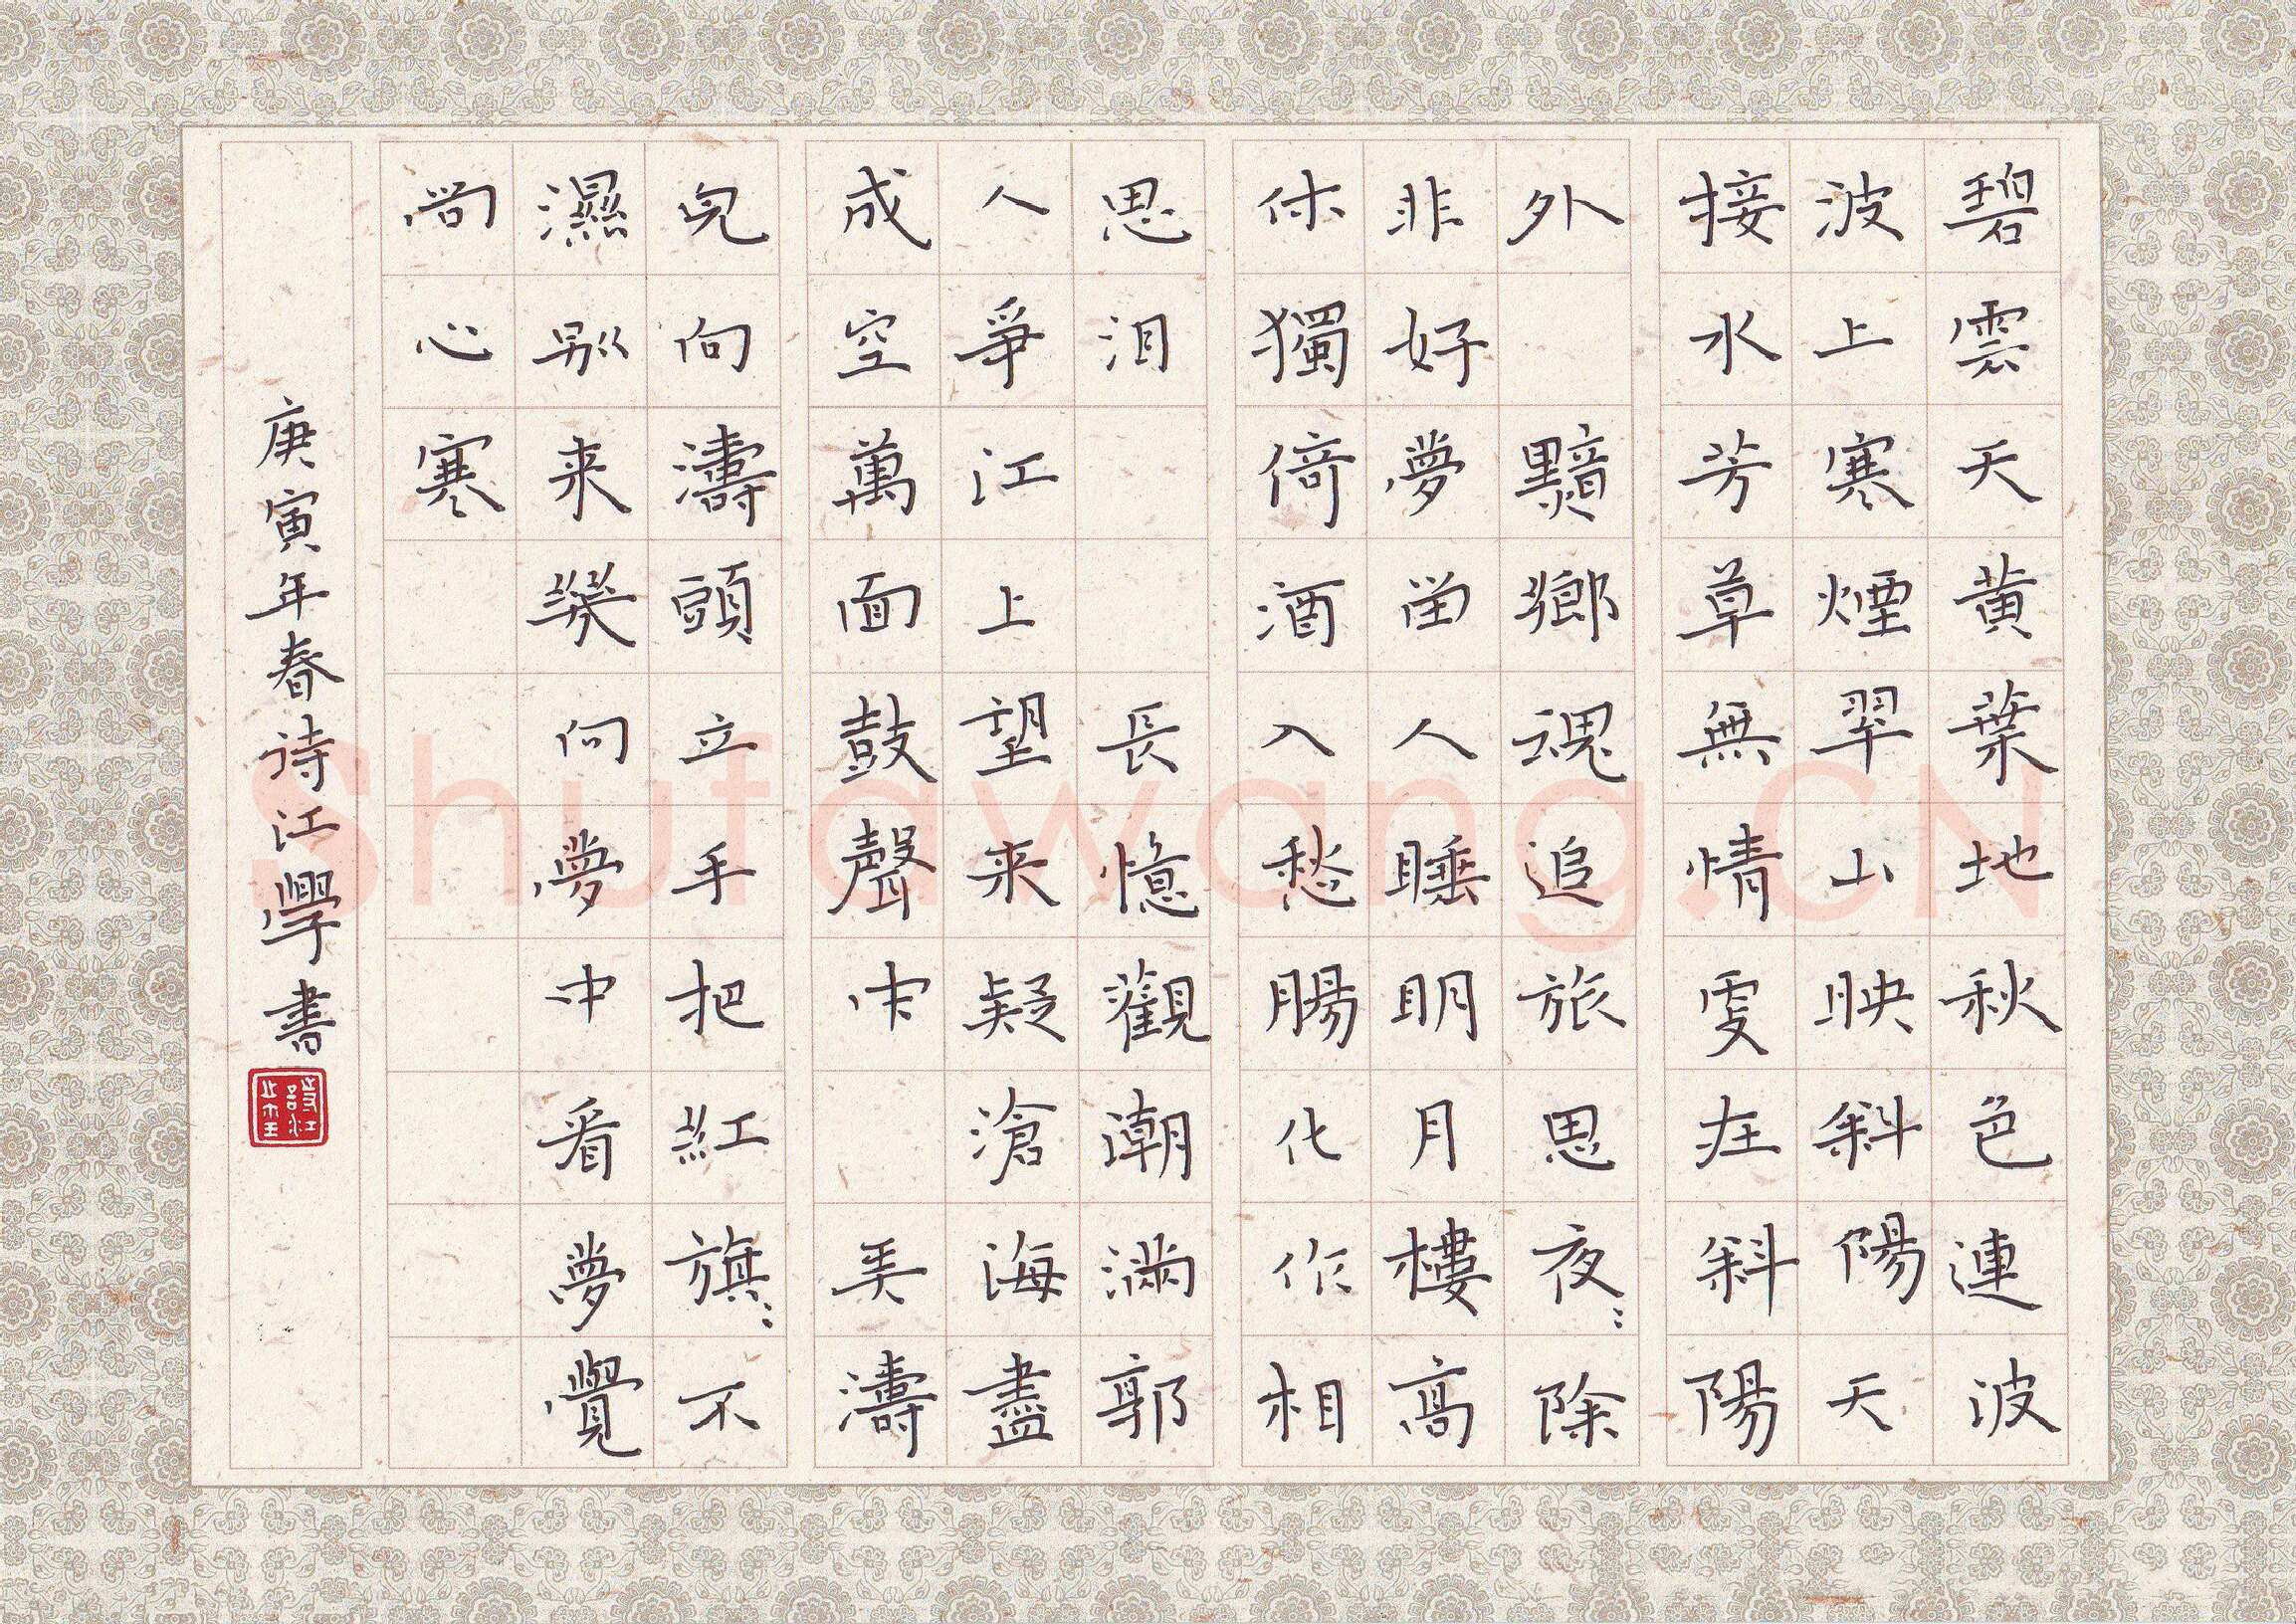 碧雲天黃葉地秋色連波
波上寒煙翠山映斜陽天
接水芳草無情更在斜陽
外 黯鄉魂追旅思夜〻除
非好夢畄人睡明月樓高
休獨倚酒入愁腸化作相
思泪 長憶觀潮滿郭
人爭江上望来疑滄海盡
成空萬面鼓聲中 弄濤
兒向濤頭立手把紅旗〻不
濕别来幾向夢中看夢覺
尚心寒
庚寅年春诗江學書
Shufawang.CN